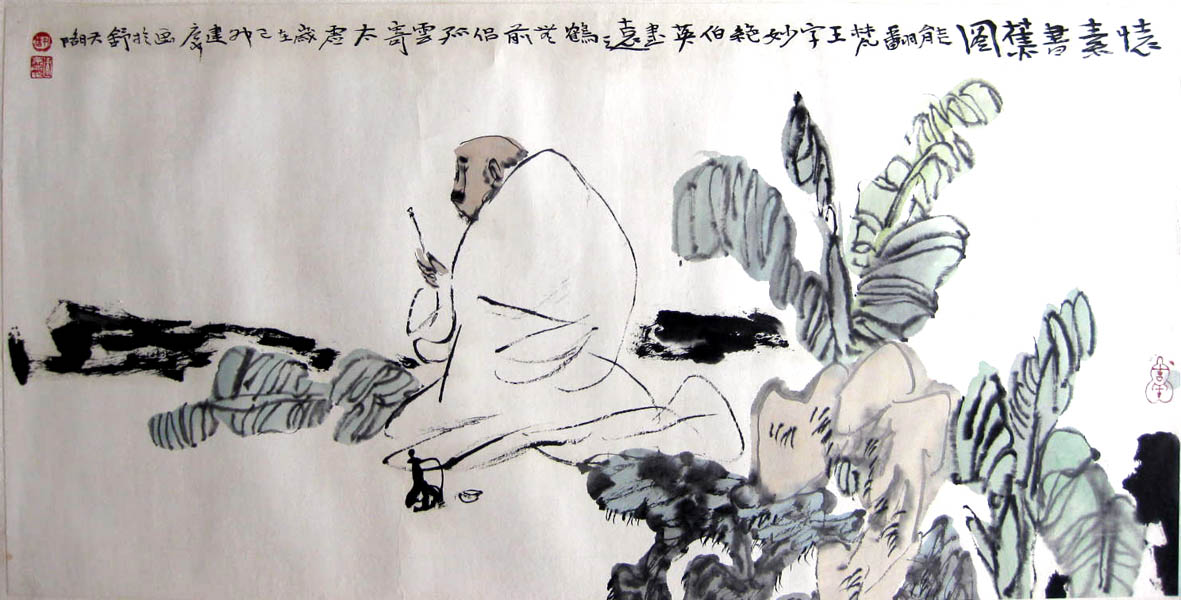 懷素書蕉圖 能翻梵王字妙絕伯英書遠鶴無前侶孤雲寄太虛歲在己卯建慶畫於舒天閣